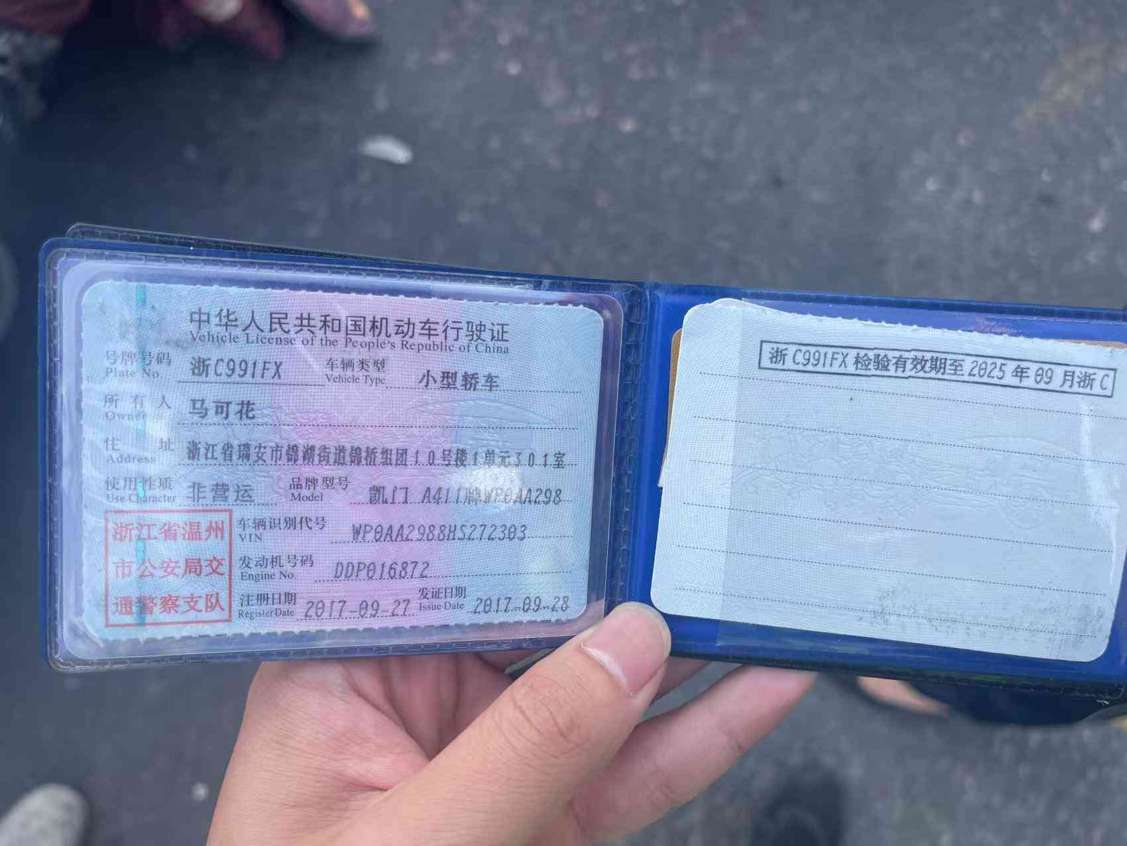 中华人民共和国机动车行驶证
Vehicle License of the People's Republic of China
号牌号码 浙C991FX 车辆类型 小型轿车
Plate No. Vehicle Type
所有人 马可花
Owner
住址 浙江省瑞安市锦湖街道锦桥组团10号楼1单元301室
Address
使用性质 非营运 品牌型号 凯门 A411牌WP0AA298
Use Character Model
浙江省温州 车辆识别代号 WP0AA2988HS272303
VIN
市公安局交 发动机号码 DDP016872
Engine No.
通警察支队 注册日期 2017-09-27 发证日期 2017-09-28
Register Date Issue Date
浙C991FX 检验有效期至 2025 年 09 月浙C